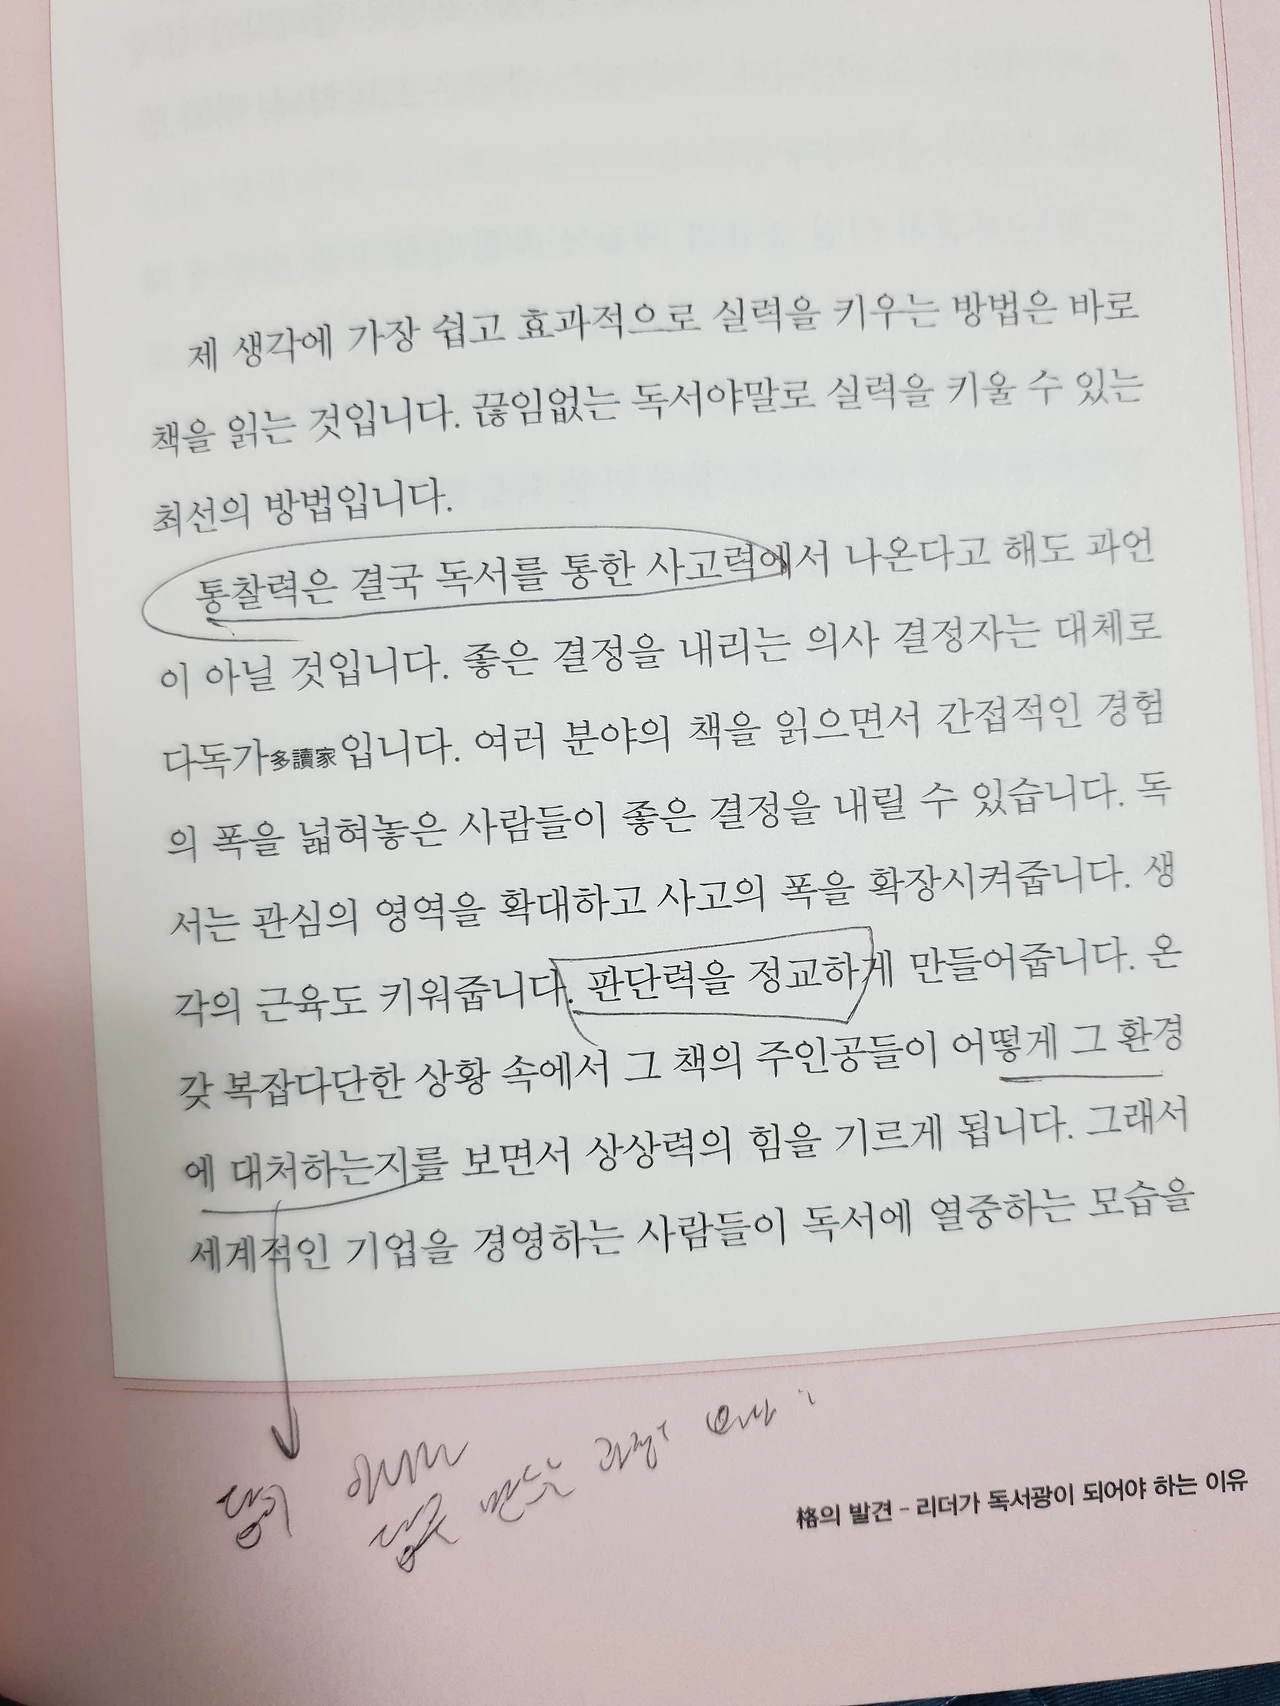 제 생각에 가장 쉽고 효과적으로 실력을 키우는 방법은 바로
책을 읽는 것입니다. 끊임없는 독서야말로 실력을 키울 수 있는
최선의 방법입니다.
통찰력은 결국 독서를 통한 사고력에서 나온다고 해도 과언
이 아닐 것입니다. 좋은 결정을 내리는 의사 결정자는 대체로
다독가多讀家입니다. 여러 분야의 책을 읽으면서 간접적인 경험
의 폭을 넓혀놓은 사람들이 좋은 결정을 내릴 수 있습니다. 독
서는 관심의 영역을 확대하고 사고의 폭을 확장시켜줍니다. 생
각의 근육도 키워줍니다. 판단력을 정교하게 만들어줍니다. 온
갖 복잡다단한 상황 속에서 그 책의 주인공들이 어떻게 그 환경
에 대처하는지를 보면서 상상력의 힘을 기르게 됩니다. 그래서
세계적인 기업을 경영하는 사람들이 독서에 열중하는 모습을
格의 발견 - 리더가 독서광이 되어야 하는 이유